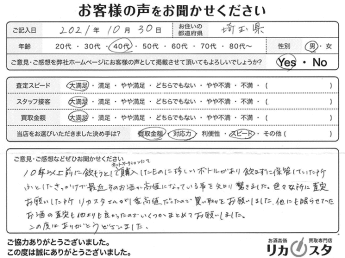 お客様の声をお聞かせください
ご記入日 2021年 10月 30日 お住いの都道府県 埼玉県
年齢 20代・30代・40代・50代・60代・70代・80代〜 性別 男・女
ご意見・ご感想を弊社ホームページにお客様の声として掲載させて頂いてもよろしいでしょうか? Yes・No
査定スピード 大満足・満足・やや満足・どちらでもない・やや不満・不満・( )
スタッフ接客 大満足・満足・やや満足・どちらでもない・やや不満・不満・( )
買取金額 大満足・満足・やや満足・どちらでもない・やや不満・不満・( )
当店をお選びいただきました決め手は? 買取金額・対応力・利便性・スピード・その他 ( )
ご意見・ご感想などぜひお聞かせください
10年以上前に飲もうとして購入したものに珍しいボトルがあり飲まずに保管していたが
ふとしたきっかけで最近そのお酒が高値になっている事を知り驚きました。色々な所に査定
お願いしたがリカスタさんが1番高値だったので買い取りをお願いしました。他にも眠らせてた
お酒の査定も
この度はありがとうございました。
ご協力ありがとうございました。
この度は誠にありがとうございました。
お酒高価買取専門店
リカスタ